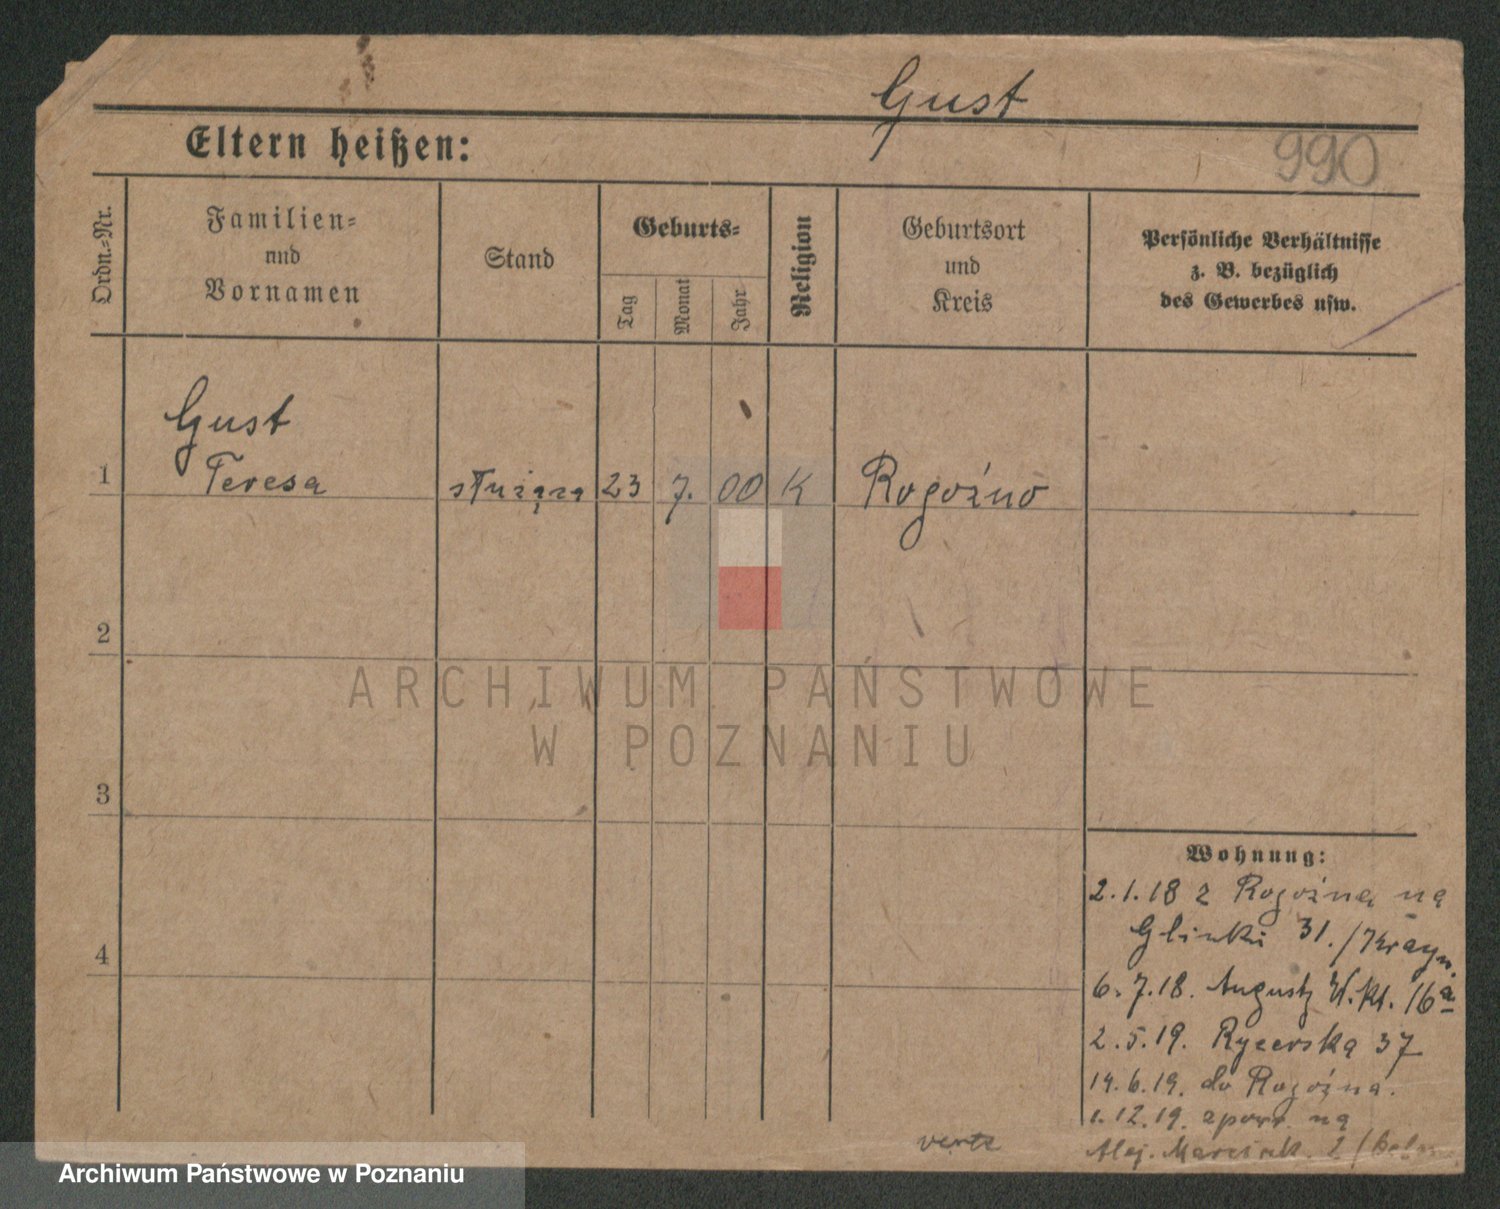 Gust
Eltern heißen:
990
Ordn.-Nr.
Familien-
und
Vornamen
Stand
Geburts-
Tag
Monat
Jahr
Religion
Geburtsort
und
Kreis
Persönliche Verhältnisse
z. B. bezüglich
des Gewerbes usw.
Gust
1 Teresa służąca 23 7. 00 K Rogoźno
2
ARCHIWUM PAŃSTWOWE
W POZNANIU
3
Wohnung:
2.1.18 z Rogoźna na
Glinki 31./
4
6.7.18. August 16a
2.5.19. Rycerska 37
14.6.19. do Rogoźna.
1.12.19. z powr. na
Alej. Marcink. 2/
verte
Archiwum Państwowe w Poznaniu